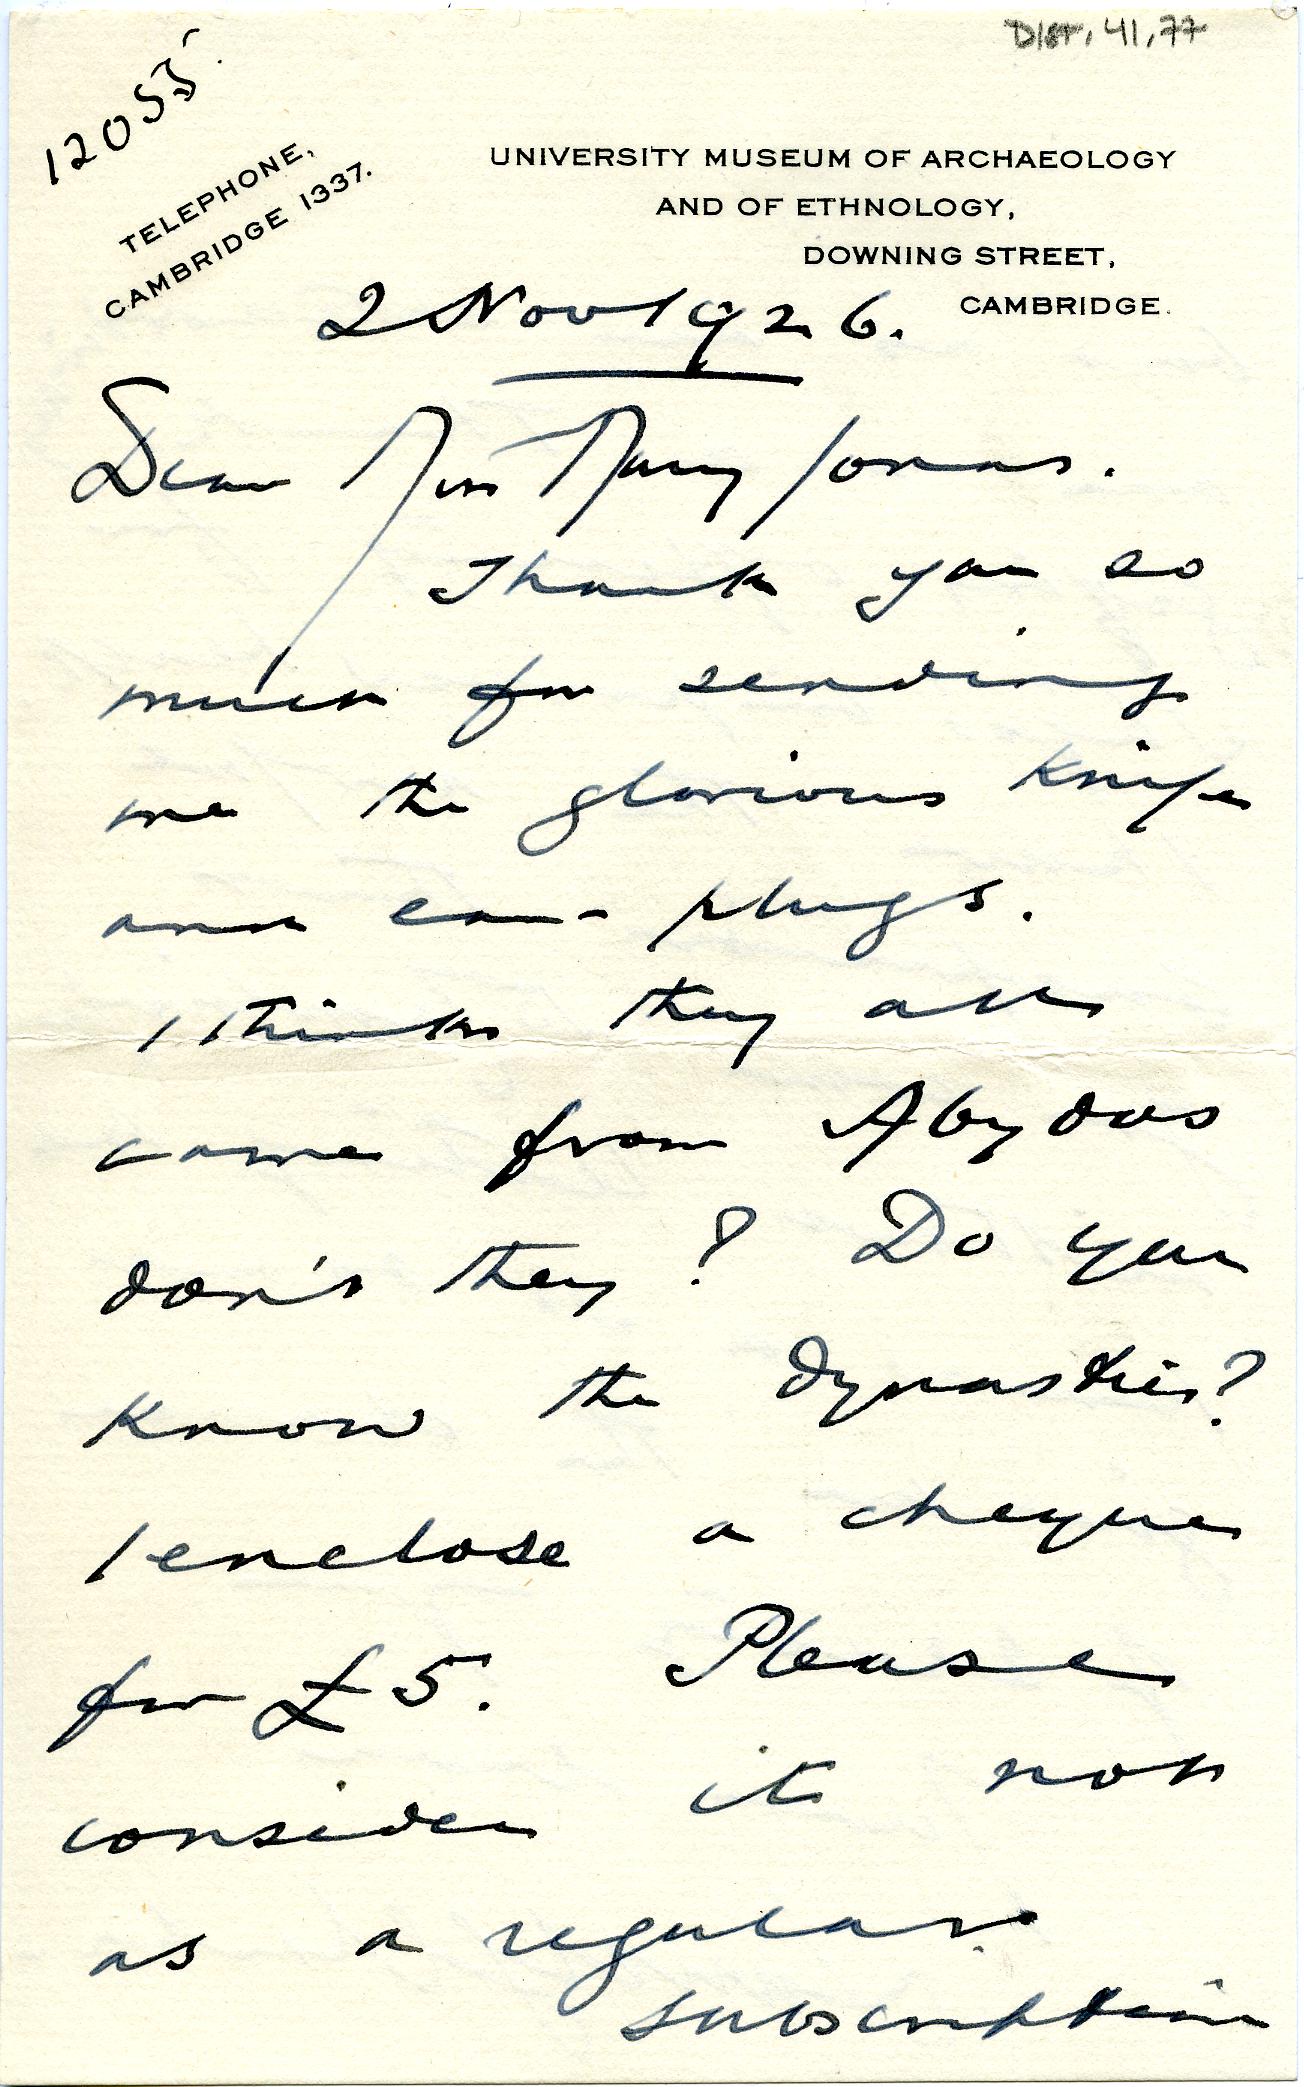 Dist. 41.77
12055
TELEPHONE,
CAMBRIDGE 1337.
UNIVERSITY MUSEUM OF ARCHAEOLOGY
AND OF ETHNOLOGY,
DOWNING STREET,
CAMBRIDGE.
2 Nov 1926.
Dear Miss Mary Jonas.
Thank you so
much for sending
me the glorious knife
and ear-plugs.
I think they all
come from Abydos
don't they? Do you
know the dynasties?
I enclose a cheque
for £5. Please
consider it not
as a regular
subscription